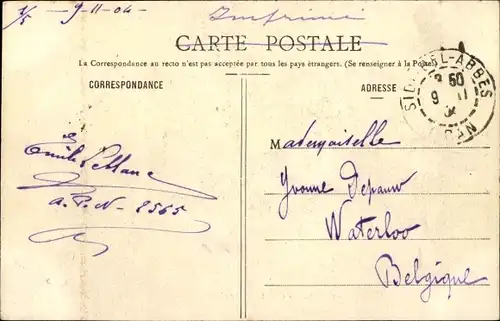 1/5 — 9-11-04 — Imprimé
CARTE POSTALE
La Correspondance au recto n'est pas acceptée par tous les pays étrangers. (Se renseigner à la Poste)
CORRESPONDANCE
ADRESSE
SIDI-BEL-ABBÈS
50
9 11
04
ORAN
Mademoiselle
Yvonne Depauw
Waterloo
Belgique
Emile Leblanc
a. P. N- 2565